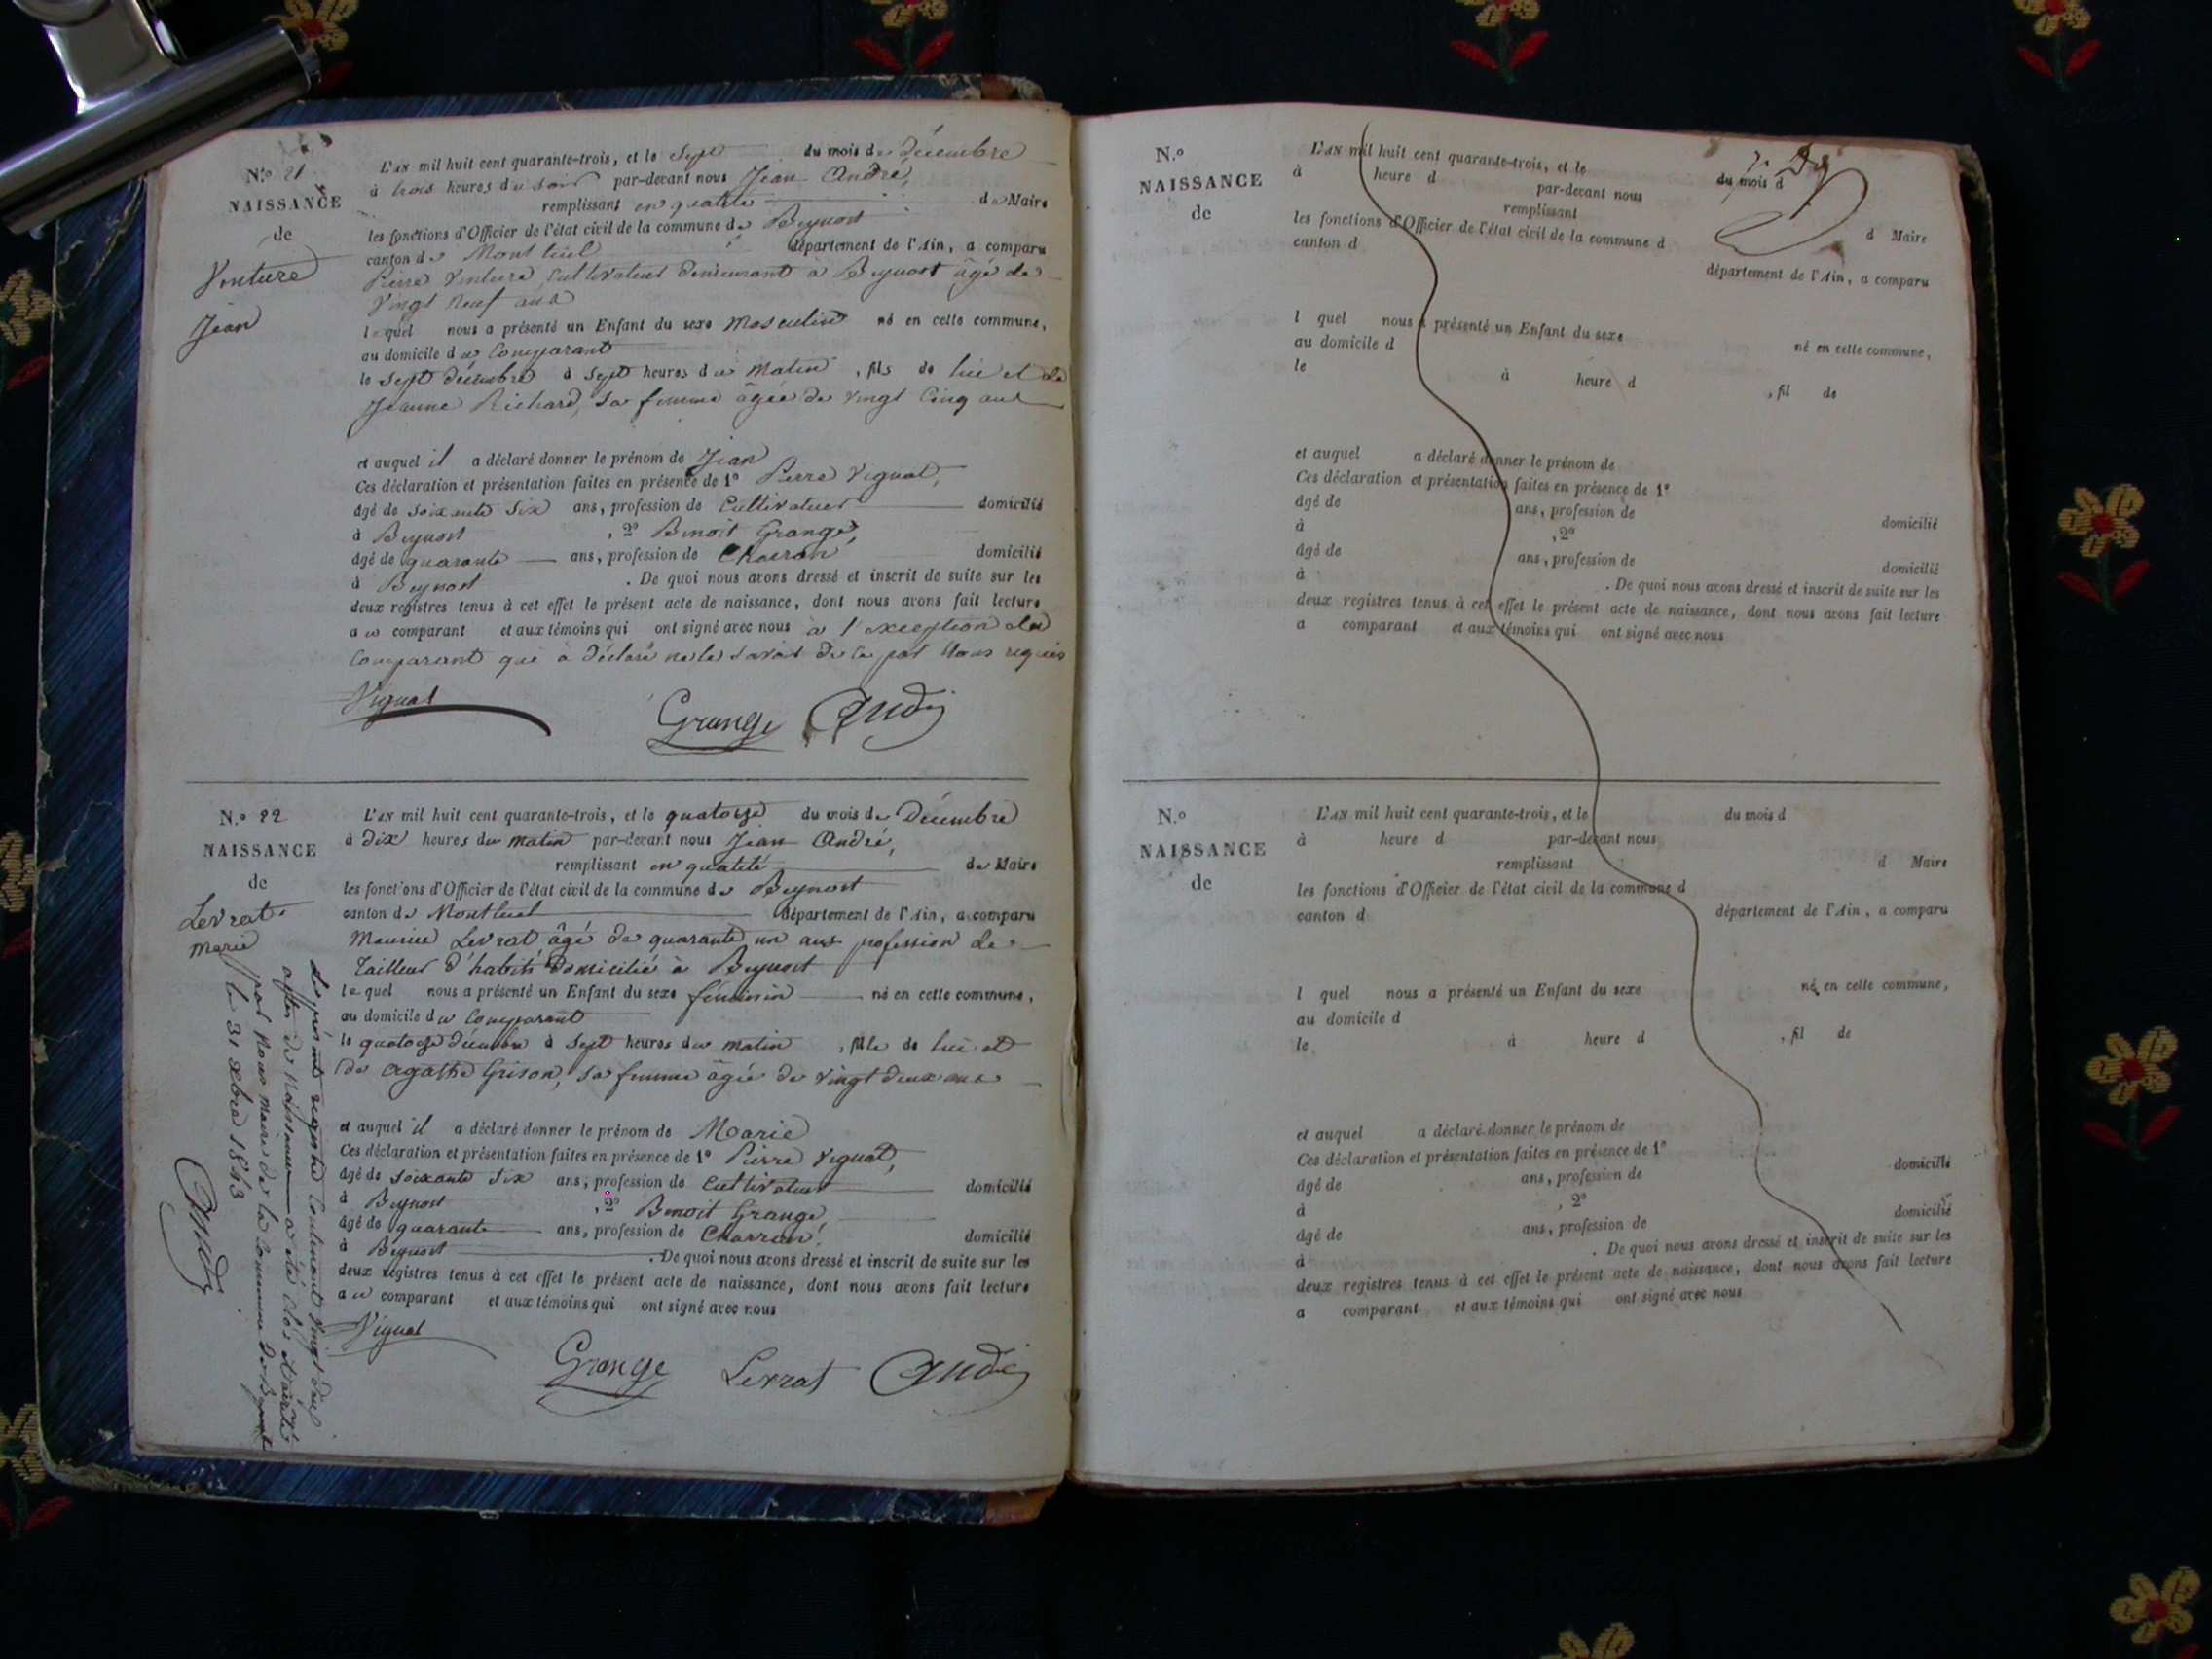 N.º 21
NAISSANCE
de
Venture
Jean
L'AN mil huit cent quarante-trois, et le Sept du mois de Décembre
à trois heures du soir par-devant nous Jean André,
remplissant en qualité de Maire
les fonctions d'Officier de l'état civil de la commune de Beynost
canton de Montluel département de l'Ain, a comparu
Pierre Venture, cultivateur demeurant à Beynost âgé de
Vingt neuf ans
lequel nous a présenté un Enfant du sexe Masculin né en cette commune,
au domicile du Comparant
le Sept décembre à Sept heures du Matin, fils de lui et de
Jeanne Richard, sa femme âgée de vingt Cinq ans
et auquel il a déclaré donner le prénom de Jean
Ces déclaration et présentation faites en présence de 1º Pierre Vignat,
âgé de soixante six ans, profession de Cultivateur domicilié
à Beynost, 2º Benoit Grange,
âgé de quarante ans, profession de Charron domicilié
à Beynost. De quoi nous avons dressé et inscrit de suite sur les
deux registres tenus à cet effet le présent acte de naissance, dont nous avons fait lecture
au comparant et aux témoins qui ont signé avec nous à l'exception du
Comparant qui a déclaré ne le savoir de ce par Nous requis
Vignat
Grange André
N.º 22
NAISSANCE
de
Levrat
Marie
L'AN mil huit cent quarante-trois, et le quatorze du mois de Décembre
à Dix heures du Matin par-devant nous Jean André,
remplissant en qualité de Maire
les fonctions d'Officier de l'état civil de la commune de Beynost
canton de Montluel département de l'Ain, a comparu
Maurice Levrat âgé de quarante un ans profession de
Tailleur d'habits domicilié à Beynost
lequel nous a présenté un Enfant du sexe féminin né en cette commune,
au domicile du Comparant
le quatorze décembre à Sept heures du matin, fille de lui et
de Agathe Grison, sa femme âgée de vingt deux ans
et auquel il a déclaré donner le prénom de Marie
Ces déclaration et présentation faites en présence de 1º Pierre Vignat,
âgé de soixante six ans, profession de Cultivateur domicilié
à Beynost, 2º Benoit Grange,
âgé de quarante ans, profession de Charron, domicilié
à Beynost. De quoi nous avons dressé et inscrit de suite sur les
deux registres tenus à cet effet le présent acte de naissance, dont nous avons fait lecture
au comparant et aux témoins qui ont signé avec nous
Vignat
Grange Levrat André
Le présent registre Contenant vingt deux
actes de Naissance a été clos et arrêté
par Nous Maire de la Commune de Beynost
le 31 Xbre 1843
André
N.º
NAISSANCE
de
L'AN mil huit cent quarante-trois, et le du mois d
à heure d par-devant nous
remplissant d Maire
les fonctions d'Officier de l'état civil de la commune d
canton d département de l'Ain, a comparu
l quel nous a présenté un Enfant du sexe né en cette commune,
au domicile d
le à heure d, fil de
et auquel a déclaré donner le prénom de
Ces déclaration et présentation faites en présence de 1º
âgé de ans, profession de domicilié
à, 2º
âgé de ans, profession de domicilié
à. De quoi nous avons dressé et inscrit de suite sur les
deux registres tenus à cet effet le présent acte de naissance, dont nous avons fait lecture
a comparant et aux témoins qui ont signé avec nous
N.º
NAISSANCE
de
L'AN mil huit cent quarante-trois, et le du mois d
à heure d par-devant nous
remplissant d Maire
les fonctions d'Officier de l'état civil de la commune d
canton d département de l'Ain, a comparu
l quel nous a présenté un Enfant du sexe né en cette commune,
au domicile d
le à heure d, fil de
et auquel a déclaré donner le prénom de
Ces déclaration et présentation faites en présence de 1º
âgé de ans, profession de domicilié
à, 2º
âgé de ans, profession de domicilié
à. De quoi nous avons dressé et inscrit de suite sur les
deux registres tenus à cet effet le présent acte de naissance, dont nous avons fait lecture
a comparant et aux témoins qui ont signé avec nous